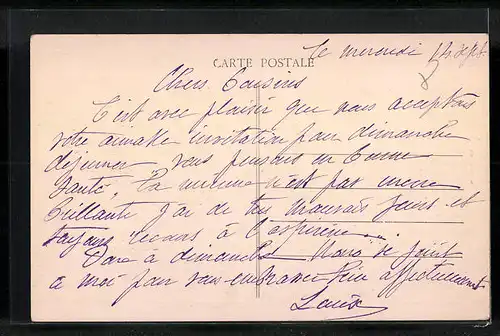 CARTE POSTALE
le mercredi 14 sept.
Chers Cousins
C'est avec plaisir que nous acceptons
votre aimable invitation pour dimanche
déjeuner vous pensons en bonne
santé, la mienne n'est pas encore
brillante j'ai de très mauvais jours et
toujours recours à l'aspirine...
Donc à dimanche se joint
à moi pour vous embrasser bien affectueusement
Louis